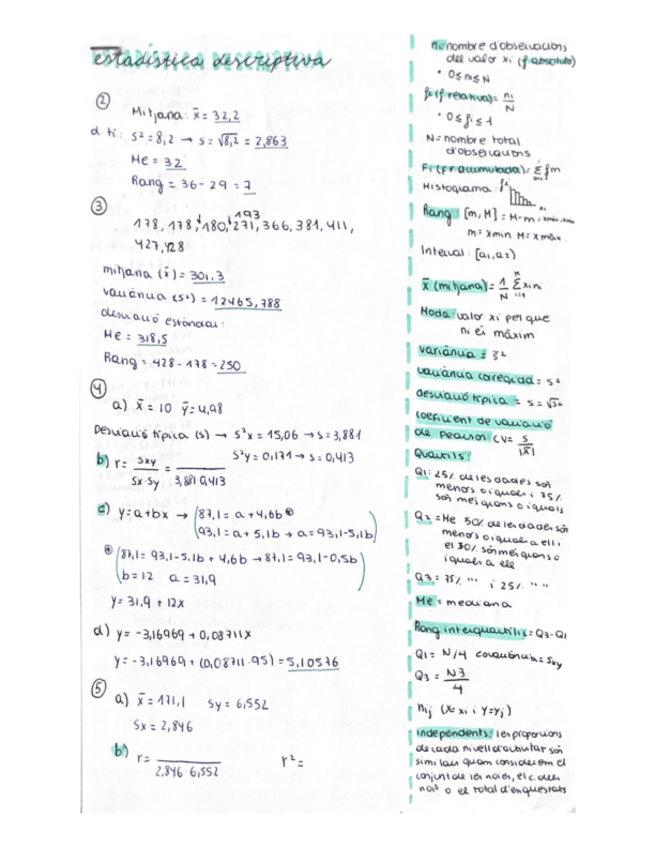 estadística descriptiva
②
Mitjana: x̄ = 32,2
d. ti: s² = 8,2 → s = √8,2 = 2,863
Me = 32
Rang = 36 - 29 = 7
③
193
178, 178, 180, 271, 366, 381, 411,
427, 428
mitjana (x̄) = 301,3
variància (s²) = 12465,788
desviació estàndar:
Me = 318,5
Rang = 428 - 178 = 250
④
a) x̄ = 10 ȳ = 4,98
Desviació típica (s) → s²x = 15,06 → s = 3,881
s²y = 0,171 → s = 0,413
b) r = Sxy / Sx·Sy = / 3,881 0,413
c) y = a + bx → (87,1 = a + 4,6b ⊛
93,1 = a + 5,1b → a = 93,1 - 5,1b)
⊛ (87,1 = 93,1 - 5,1b + 4,6b → 87,1 = 93,1 - 0,5b
b = 12 a = 31,9)
y = 31,9 + 12x
d) y = -3,16969 + 0,08711x
y = -3,16969 + (0,08711·95) = 5,10576
⑤
a) x̄ = 171,1 Sy = 6,552
Sx = 2,846
b) r = / 2,846 6,552 r² =
ni: nombre d'observacions
del valor xi (f absoluta)
• 0 ≤ ni ≤ N
fi (f relativa) = ni / N
• 0 ≤ fi ≤ 1
N = nombre total
d'observacions
Fi (fr acumulada) = Σ fm
Histograma:
Rang: [m, M] = M - m = xmàx - xmin
m = xmin M = xmàx
Interval: [a1, a2)
x̄ (mitjana) = 1/N Σ xi ni
Moda: valor xi pel que
ni és màxim
variància = s²
variància corregida = s²
desviació típica = s = √s²
coeficient de variació
de Pearson CV = s / |x̄|
Quartils:
Q1: 25% de les dades són
menors o iguals i 75%
són més grans o iguals
Q2 = Me 50% de les dades són
menors o iguals a ell i
el 50% són més grans o
iguals a ell
Q3 = 75% " " i 25% " "
Me = mediana
Rang interquartílic = Q3 - Q1
Q1 = N/4 covariància = Sxy
Q3 = N3 / 4
nij (X = xi i Y = yj)
independents: les proporcions
de cada nivell d'
similars quan considerem el
conjunt de les noies, el c. dels
nois o el total d'enquestats